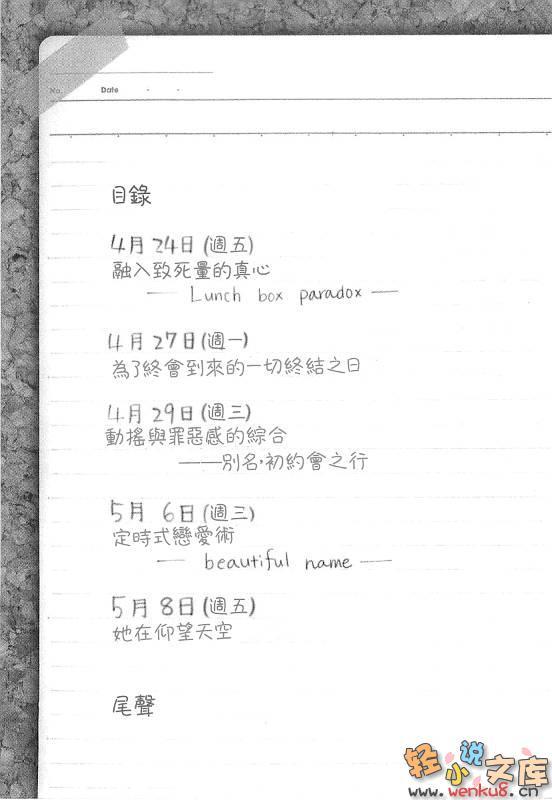 No.
Date
目錄
4月24日(週五)
融入致死量的真心
— Lunch box paradox —
4月27日(週一)
為了終會到來的一切終結之日
4月29日(週三)
動搖與罪惡感的綜合
——別名,初約會之行
5月 6日(週三)
定時式戀愛術
— beautiful name —
5月 8日(週五)
她在仰望天空
尾聲
轻小说文库
www.wenku8.cn